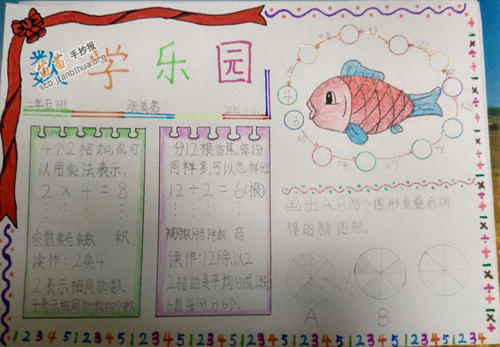 数学乐园
苗苗手抄报
sc.jianbihua.org
二年五班
4个2相加,也可
以用乘法表示,
2×4=8
乘数 乘号 乘数 积
读作:2乘4
2表示相同加数
4表示相同加数的个数
分12根香蕉,每份
同样多,可以怎样分
12÷2=6(根)
被除数 除号 除数 商
读作:12除以2
2指的是平均分成2份
6指每份分6个。
4
3
画出A,B两个图形重叠后所
得的新图形。
A
B
1 2 3 4 5 1 2 3 4 5 1 2 3 4 5 1 2 3 4 5 1 2 3 4 5 1 2 3 4 5